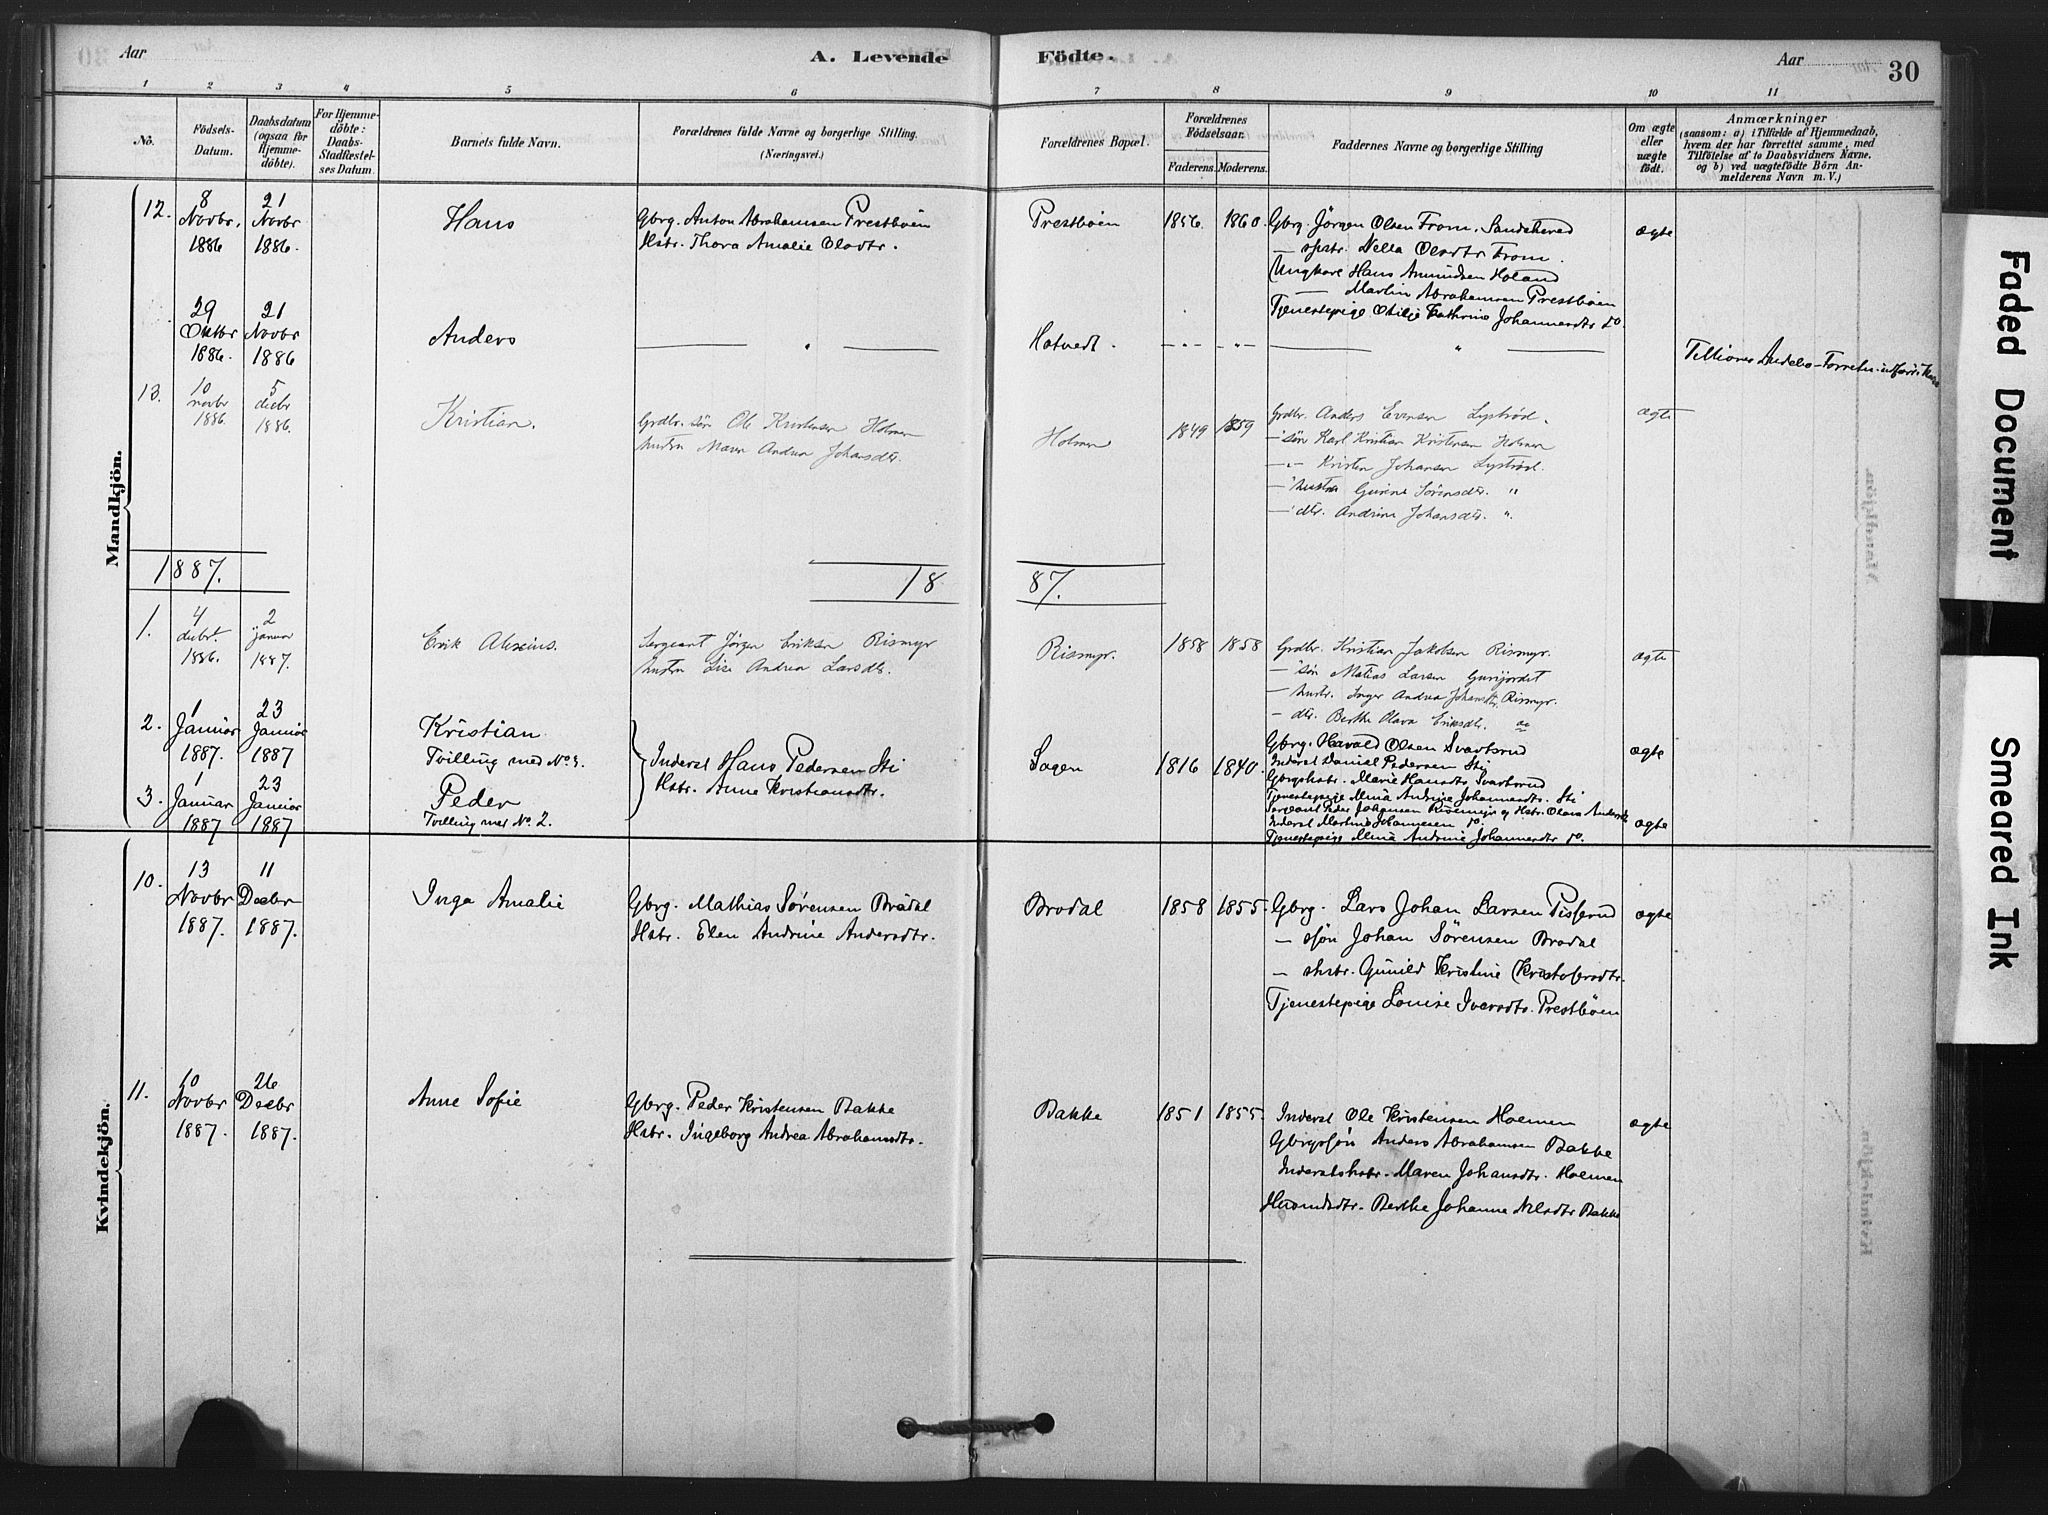 Aar
A. Levende
Födte.
Aar
30
1 2 3 4 5 6 7 8 9 10 11
No.
Födsels-
Datum.
Daabsdatum
(ogsaa for
Hjemme-
döbte).
For Hjemme-
döbte:
Daabs-
Stadfæstel-
ses Datum.
Barnets fulde Navn.
Forældrenes fulde Navne og borgerlige Stilling.
(Næringsvei.)
Forældrenes Bopæl.
Forældrenes
Födselsaar.
Faderens. Moderens.
Faddernes Navne og borgerlige Stilling
Om ægte
eller
uægte
födt.
Anmærkninger
(saasom: a) i Tilfælde af Hjemmedaab,
hvem der har forrettet samme, med
Tilföielse af to Daabsvidners Navne,
og b) ved uægtefödte Börn An-
melderens Navn m. V.)
Mandkjön.
12.
8
Novbr.
1886
21
Novbr
1886.
Hans
Gbrg. Anton Abrahamsen Prestbøen
Hstr. Thora Amalie Olsdtr.
Prestbøen
1856
1860.
Gbrg. Jörgen Olsen From, Sandeherred
— hstr. Nella Olsdtr From.
Ungkarl Hans Amundsen Hotand
— Martin Abrahamsen Prestbøen
Tjenestepige Otilje Kathrine Johannesdtr do.
ægte
29
Oktbr
1886.
21
Novbr
1886
Anders
— " —
Hotvedt.
- " -
"
— " —
13.
10
novbr
1886.
5
decbr
1886.
Kristian.
Grdbr. søn Ole Kristensen Holmen
hustru Maren Andrea Johansdtr.
Holmen
1849
1859
Grdbr. Anders Evensen Lystrød.
— søn Karl Kristian Kristensen Holmen
—"— Kristen Johansen Lystrød.
— hustru Gurine Sørensdtr. "
— dtr. Andrine Johansdtr. "
ægte
1887.
18
87.
1.
4
decbr.
1886.
2
januar
1887.
Erik Alexius.
Sergeant Jørgen Eriksen Rismyr
hustru Lise Andrea Larsdtr.
Rismyr.
1858
1858
Grdbr. Kristian Jakobsen Rismyr.
— søn Matias Larsen Gurijordet
— hustr. Inger Andrea Johansdtr. Rismyr.
— dtr. Berthe Olava Eriksdtr.
ægte
2.
1
Januar
1887.
23
Januar
1887
Kristian
Tvilling med No 3.
Inderst Hans Pedersen Sti
Hstr. Anne Kristiansdtr.
1816
1840.
Gbrg. Havald Olsen Svartsrud
Inderst Daniel Pedersen Sti
Gbrgshstr. Marie Hansdtr Svartsrud
Tjenestepige Mina Andrine Johannesdtr. Sti
ægte
3.
1
Januar
1887
23
Januar
1887
Peder
Tvilling med No. 2.
Sergeant Peder Johansen Risemyr og Hstr. Olava
Inderst Martine Johannesen do.
Tjenestepige Mina Andrine Johannesdtr do.
ægte
Kvindekjön.
10.
13
Novbr
1887.
11
Decbr
1887.
Inga Amalie
Gbrg. Mathias Sørensen Brodal
Hstr. Elen Andrine Andersdtr.
Brodal
1858
1855.
Gbrg. Lars Johan Larsen Tisserud
— søn Johan Sørensen Brodal
— hstr. Gunild Kristine Kristofersdtr.
Tjenestepige Louise Iversdtr. Prestbøen
ægte
11.
10
Novbr
1887.
26
Decbr
1887.
Anne Sofie
Gbrg. Peder Kristensen Bakke
Hstr. Ingeborg Andrea Abrahamsdtr.
Bakke
1851
1855.
Inderst Ole Kristensen Holmen
Gbrgssøn Anders Abrahamsen Bakke
Inderstshstr. Maren Johansdtr. Holmen
Berthe Johanne Nilsdtr Bakke
ægte
Faded Document
Smeared Ink